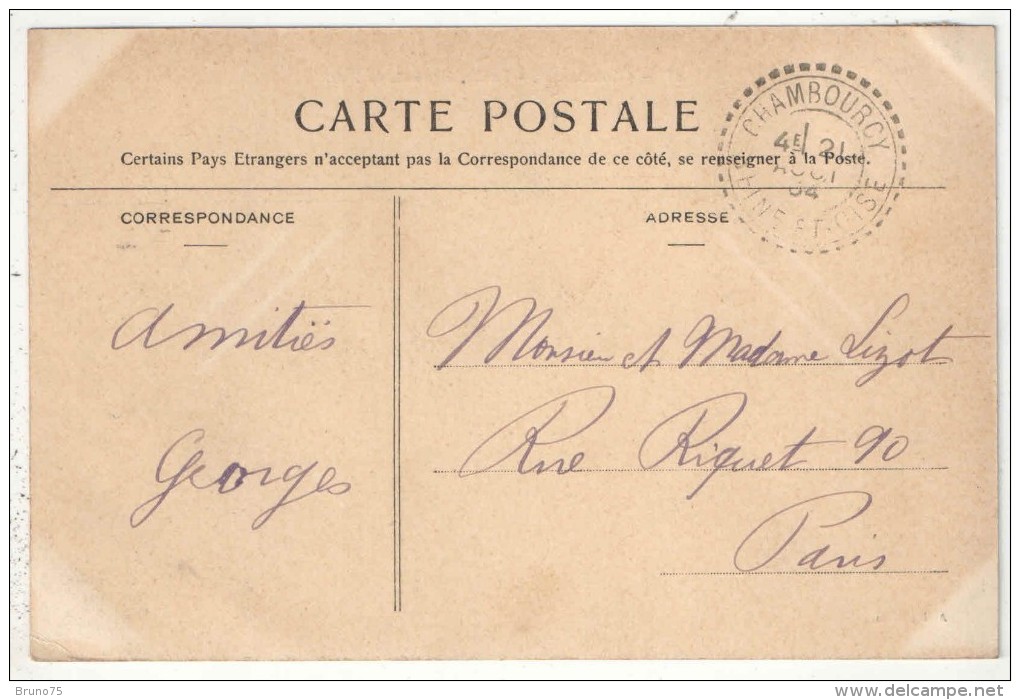 CARTE POSTALE
Certains Pays Etrangers n'acceptant pas la Correspondance de ce côté, se renseigner à la Poste.
CHAMBOURCY
4E 21
AOUT
04
SEINE-ET-OISE
CORRESPONDANCE
ADRESSE
Amitiés
Georges
Monsieur et Madame Lizot
Rue Riquet 90
Paris
Bruno75
www.delcampe.net